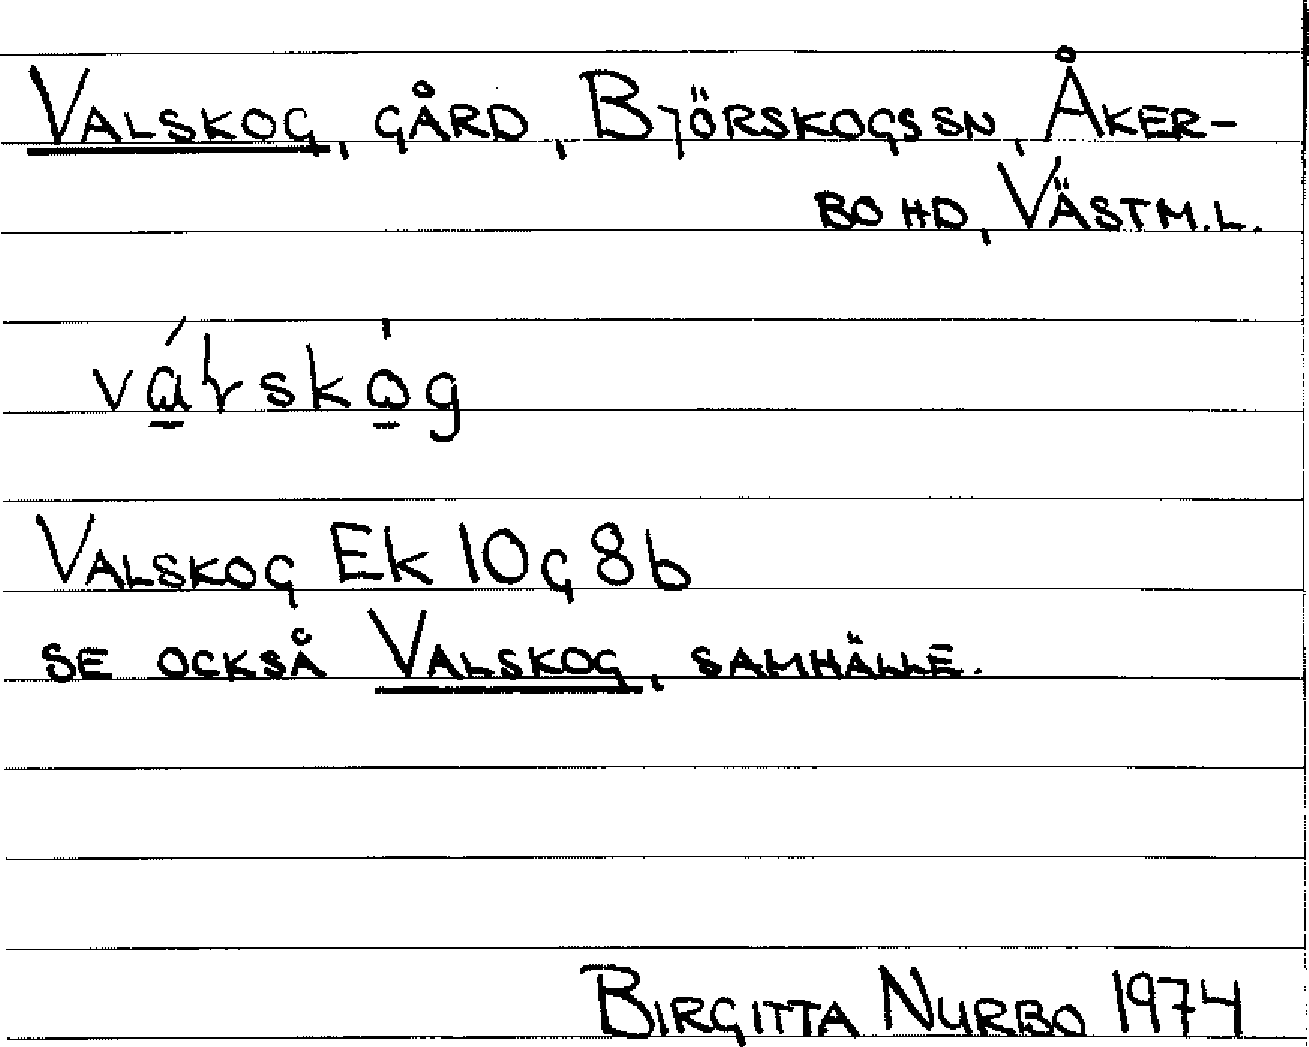 VALSKOG, GÅRD, BJÖRSKOGS SN, ÅKER-
BO HD, VÄSTM.L.
VALSKOG Ek 10G 8b
SE OCKSÅ VALSKOG, SAMHÄLLE.
BIRGITTA NURBO 1974